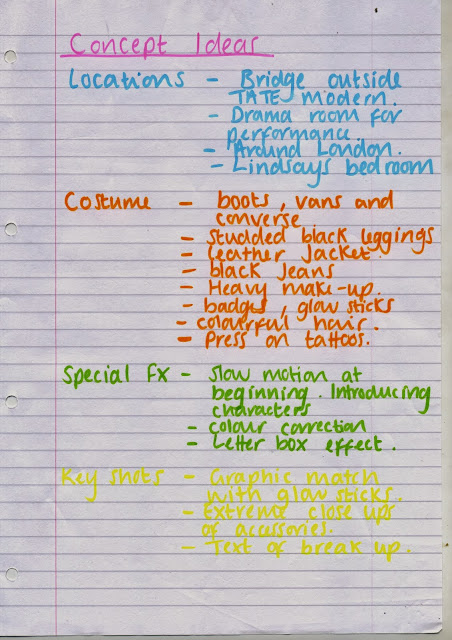 Concept Ideas
Locations - Bridge outside
TATE modern.
- Drama room for
performance.
- Around London.
- Lindsays bedroom
Costume - boots, vans and
converse
- Studded black leggings
- leather Jacket.
- black jeans
- Heavy make-up.
- badges, glow sticks
- colourful hair.
- Press on tattoos.
Special FX - Slow motion at
beginning. Introducing
characters
- colour correction
- Letter box effect.
Key shots - Graphic match
with glow sticks.
- Extreme close ups
of accessories.
- Text of break up.